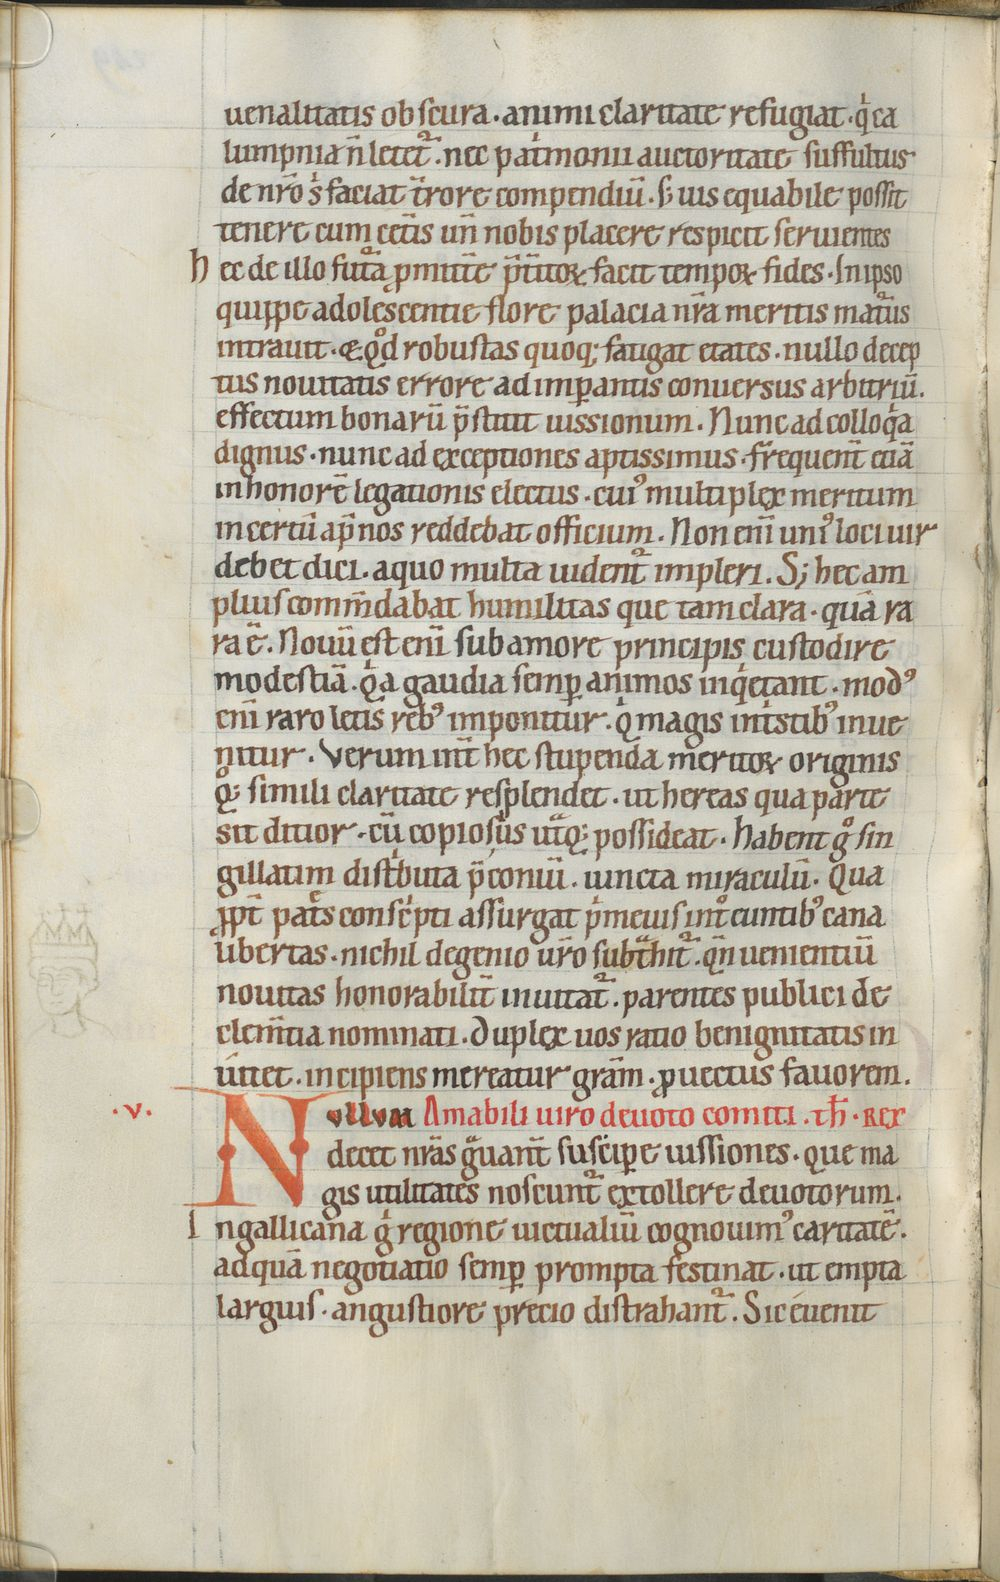 uenalitatis obscura. animi claritate refugiat. q̇ ca
lumpnia ñ letet᷑. nec pat̓monii auctoritate suffultus
de nr̃o s̓ faciat t̃rore compendiũ. s; uis equabile possit
tenere cum cet̃is un̄ nobis placere respicit seruientes
hec de illo fut᷑a ꝓmittẽ p̃titoꝝ facit tempoꝝ fides. In ipso
quippe adolescentie flore palacia nr̃a meritis mat᷑us
intrauit. & qd̊ robustas quoq; fatigat etates. nullo decep
tus nouitatis errore ad imꝑantis conuersus arbitriũ.
effectum bonarũ p̃stitit iussionum. Nunc ad colloq̇a
dignus. nunc ad exceptiones aptissimus. frequent̃ etiã
in honorẽ legationis electus. cui᾽ multiplex meritum
incertũ ap̃ nos reddebat officium. Non eni᷑ uni᾽ loci uir
debet dici. a quo multa uident᷑ impleri. S; hec am
plius com̃dabat humilitas que tam clara. quã ra
ra ẽ. Nouũ est eni᷑ sub amore principis custodire
modestiã. q̇a gaudia semꝑ animos inq̇etant. mod᾽
eni᷑ raro letis reb᾽ imponitur. q̇ magis int̓stib᾽ inue
nitur. Verum int̃ hec stupenda meritoꝝ originis
q̊; simili claritate resplendet. ut hereas qua parte
sit ditior. cũ copiosi᾽us ut̃q; possideat. Habent g̊ sin
gillatim dist̓buta p̃coniũ. iuncta miraculũ. Qua
ꝓpt̃ pat̃s consc̓pti assurgat p̓meuis int̊euntib᾽ cana
ũbertas. nichil de genio ur̃o subt̃hit᷑. q̃n uenientiũ
nouitas honorabilit̃ inuitat᷑. parentes publici de
clem̃tia nominati. Duplex uos ratio benignitatis in
ũitet. incipiens mereatur gr̃am. ꝓuectus fauorem.
.v. NULLUM Amabili uiro deuoto comiti. th̃. REX
decet nr̃as g̃uant̃ suscipe iussiones. que ma
gis utilitates noscunt᷑ extollere deuotorum.
In gallicana g̓ regione uictualiũ cognouim᾽ caritatẽ.
ad quã negotiatio semꝑ prompta festinat. ut empta
largius. angustiore precio distrahant᷑. Sic euenit